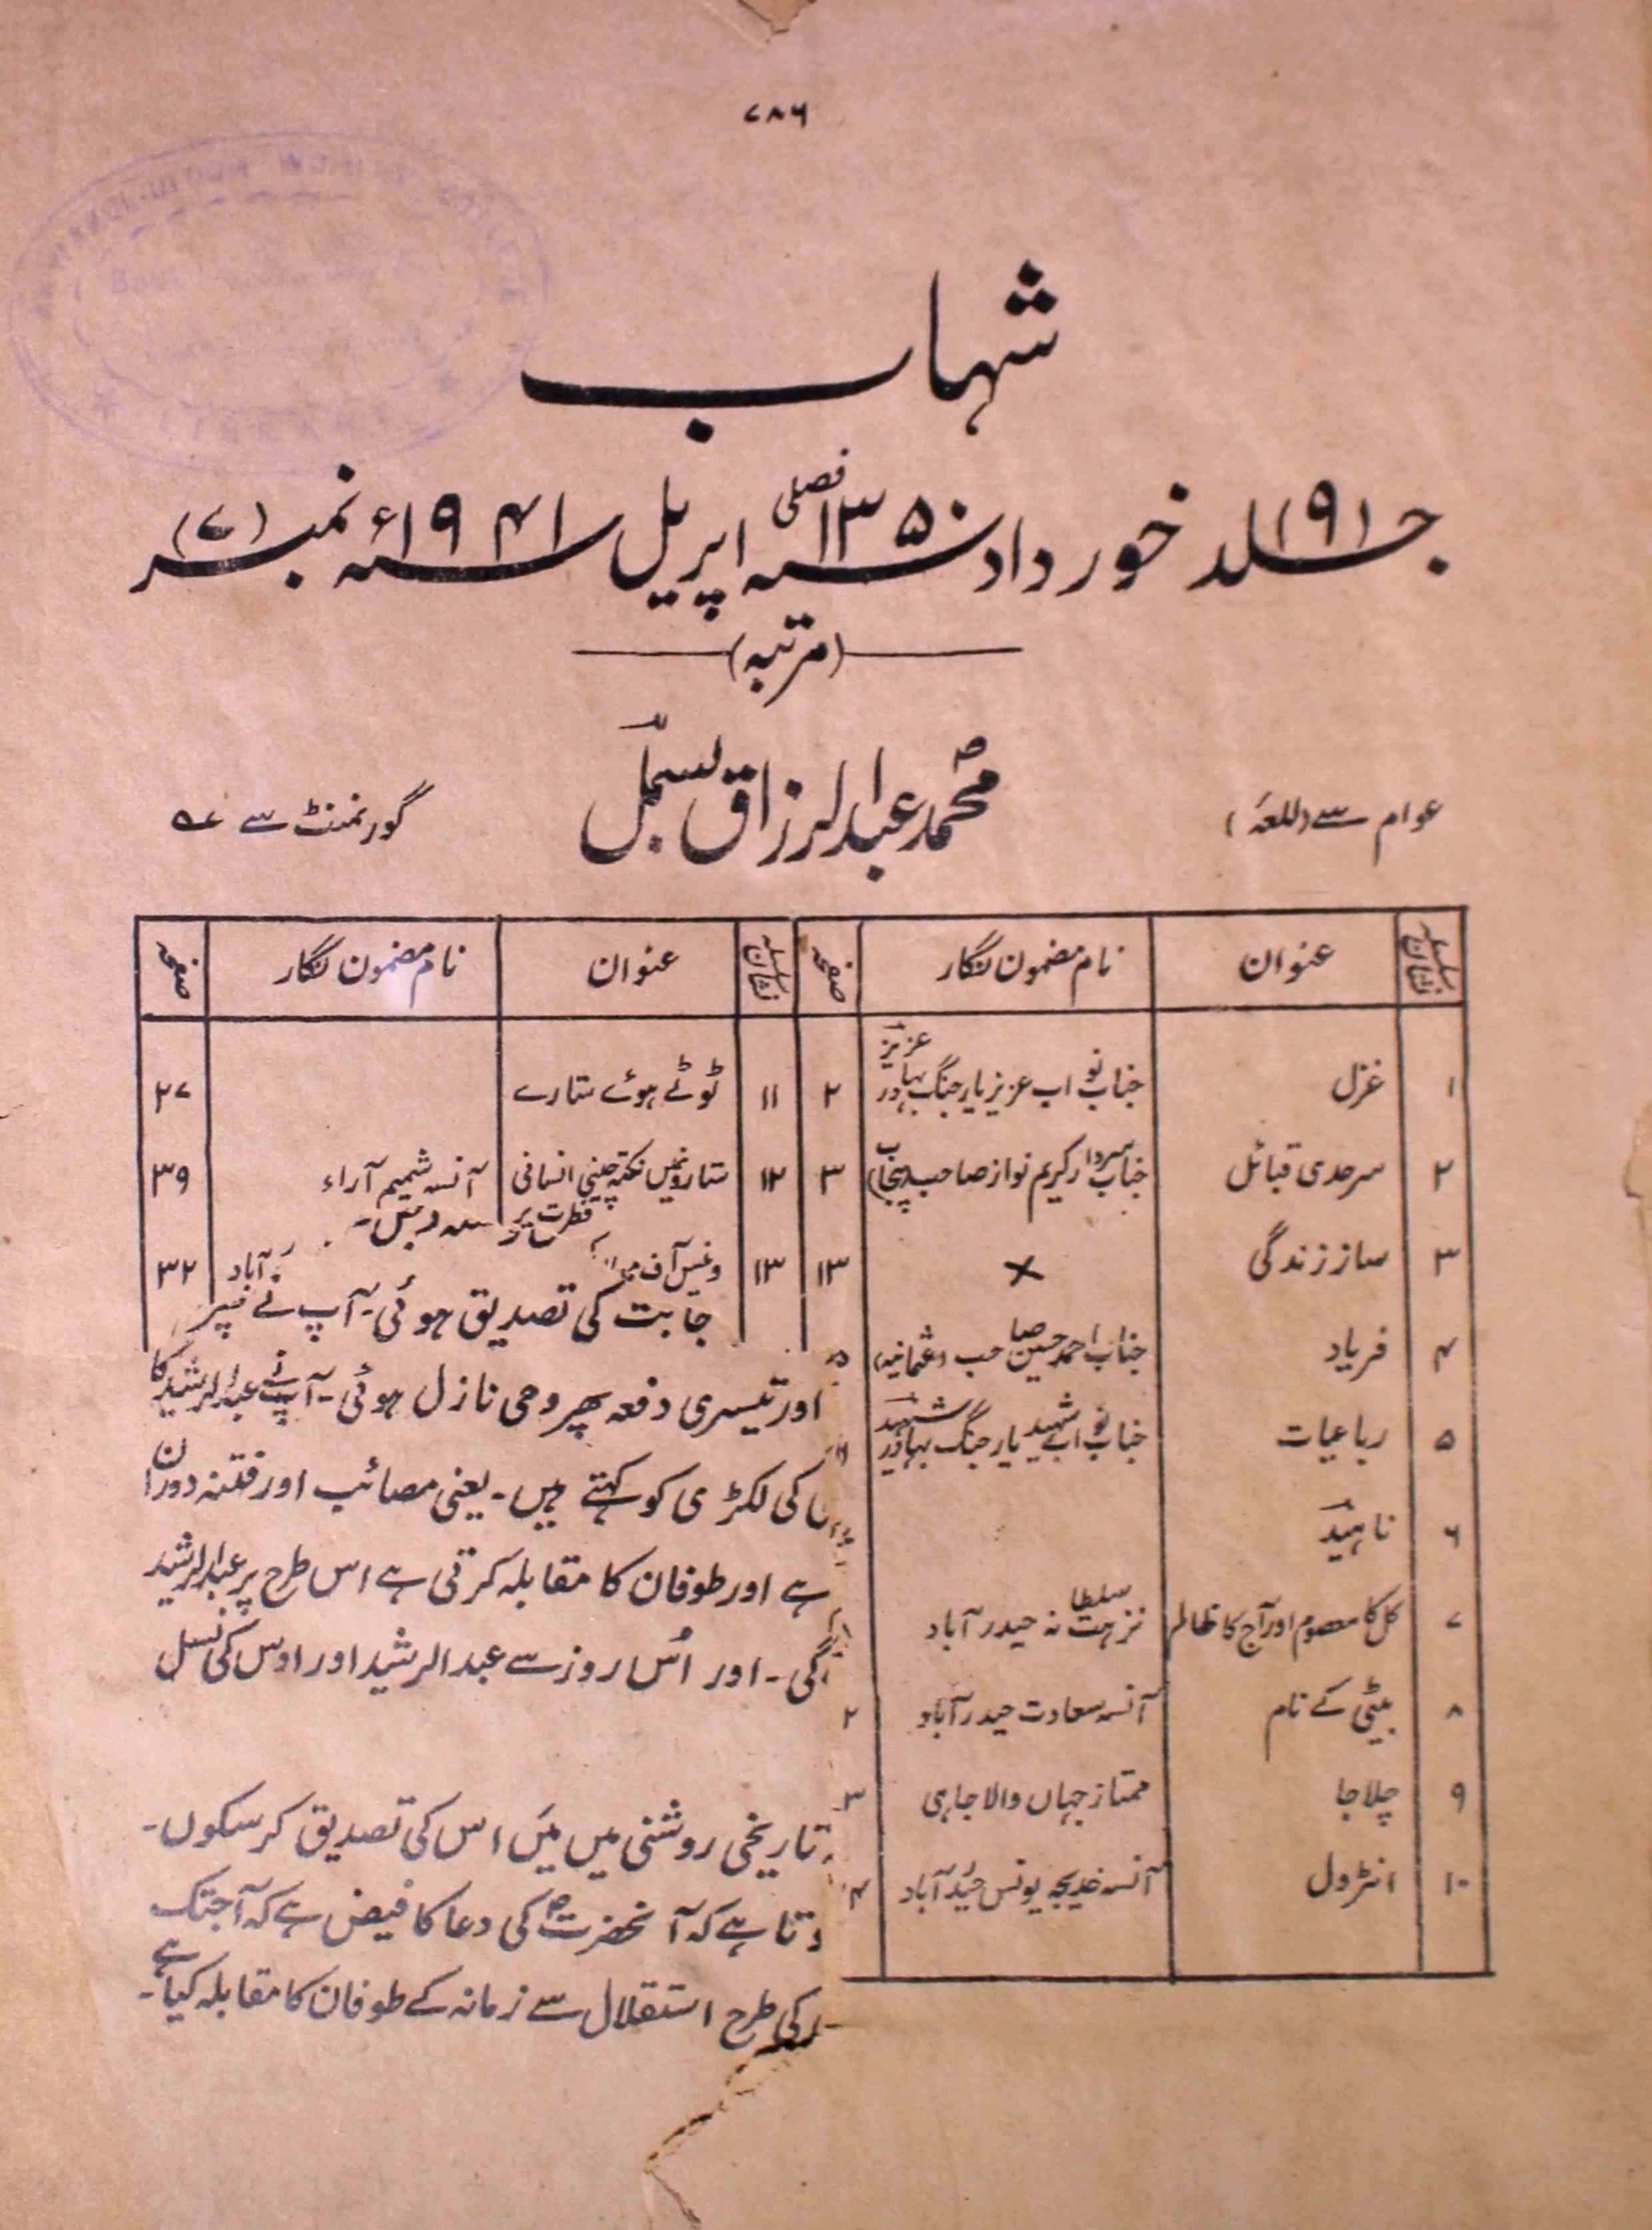 ۷۸۶
شہاب
جلد (۹۱) خورداد ۱۳۵۰ فصلی اپریل ۱۹۴۱ء نمبر (۷)
(مرتبہ)
محمد عبدالرزاق بسمل
عوام سے (للعہ)
گورنمنٹ سے
سلسلہ نشان عنوان نام مضمون نگار صفحہ
۱ غزل جناب نواب عزیز یار جنگ بہادر عزیز ۲
۲ سرحدی قبائل جناب سردار کریم نواز صاحب (پنجاب) ۳
۳ ساز زندگی × ۱۳
۴ فریاد جناب احمد حسین صاحب (عثمانیہ)
۵ رباعیات جناب نواب شہید یار جنگ بہادر شہید
۶ ناہید
۷ کل کا معصوم اور آج کا ظالم نزہت سلطانہ حیدرآباد
۸ بیٹی کے نام آنسہ سعادت حیدرآباد ۲
۹ چلا جا ممتاز جہاں والا جاہی ۳
۱۰ انٹرول آنسہ خدیجہ یونس حیدرآباد ۴
سلسلہ نشان عنوان نام مضمون نگار صفحہ
۱۱ ٹوٹے ہوئے ستارے ۲۷
۱۲ ستارونمیں نکتہ چینی انسانی فطرت پر آنسہ شمیم آراء ۳۹
۱۳ وغیس آف آباد ۳۲
جابت کی تصدیق ہوئی۔ آپ نے پھر
اور تیسری دفعہ پھر وحی نازل ہوئی۔ آپ نے عبدالرشید کا
کی لکڑی کو کہتے ہیں۔ یعنی مصائب اور فتنہ دوران
ہے اور طوفان کا مقابلہ کرتی ہے اس طرح پر عبدالرشید
گی۔ اور اُس روز سے عبدالرشید اور اوس کی نسل
تاریخی روشنی میں مَیں اس کی تصدیق کر سکوں۔
وتا ہے کہ آنحضرتؐ کی دعا کا فیض ہے کہ آجتک
کی طرح استقلال سے زمانہ کے طوفان کا مقابلہ کیا ہے۔